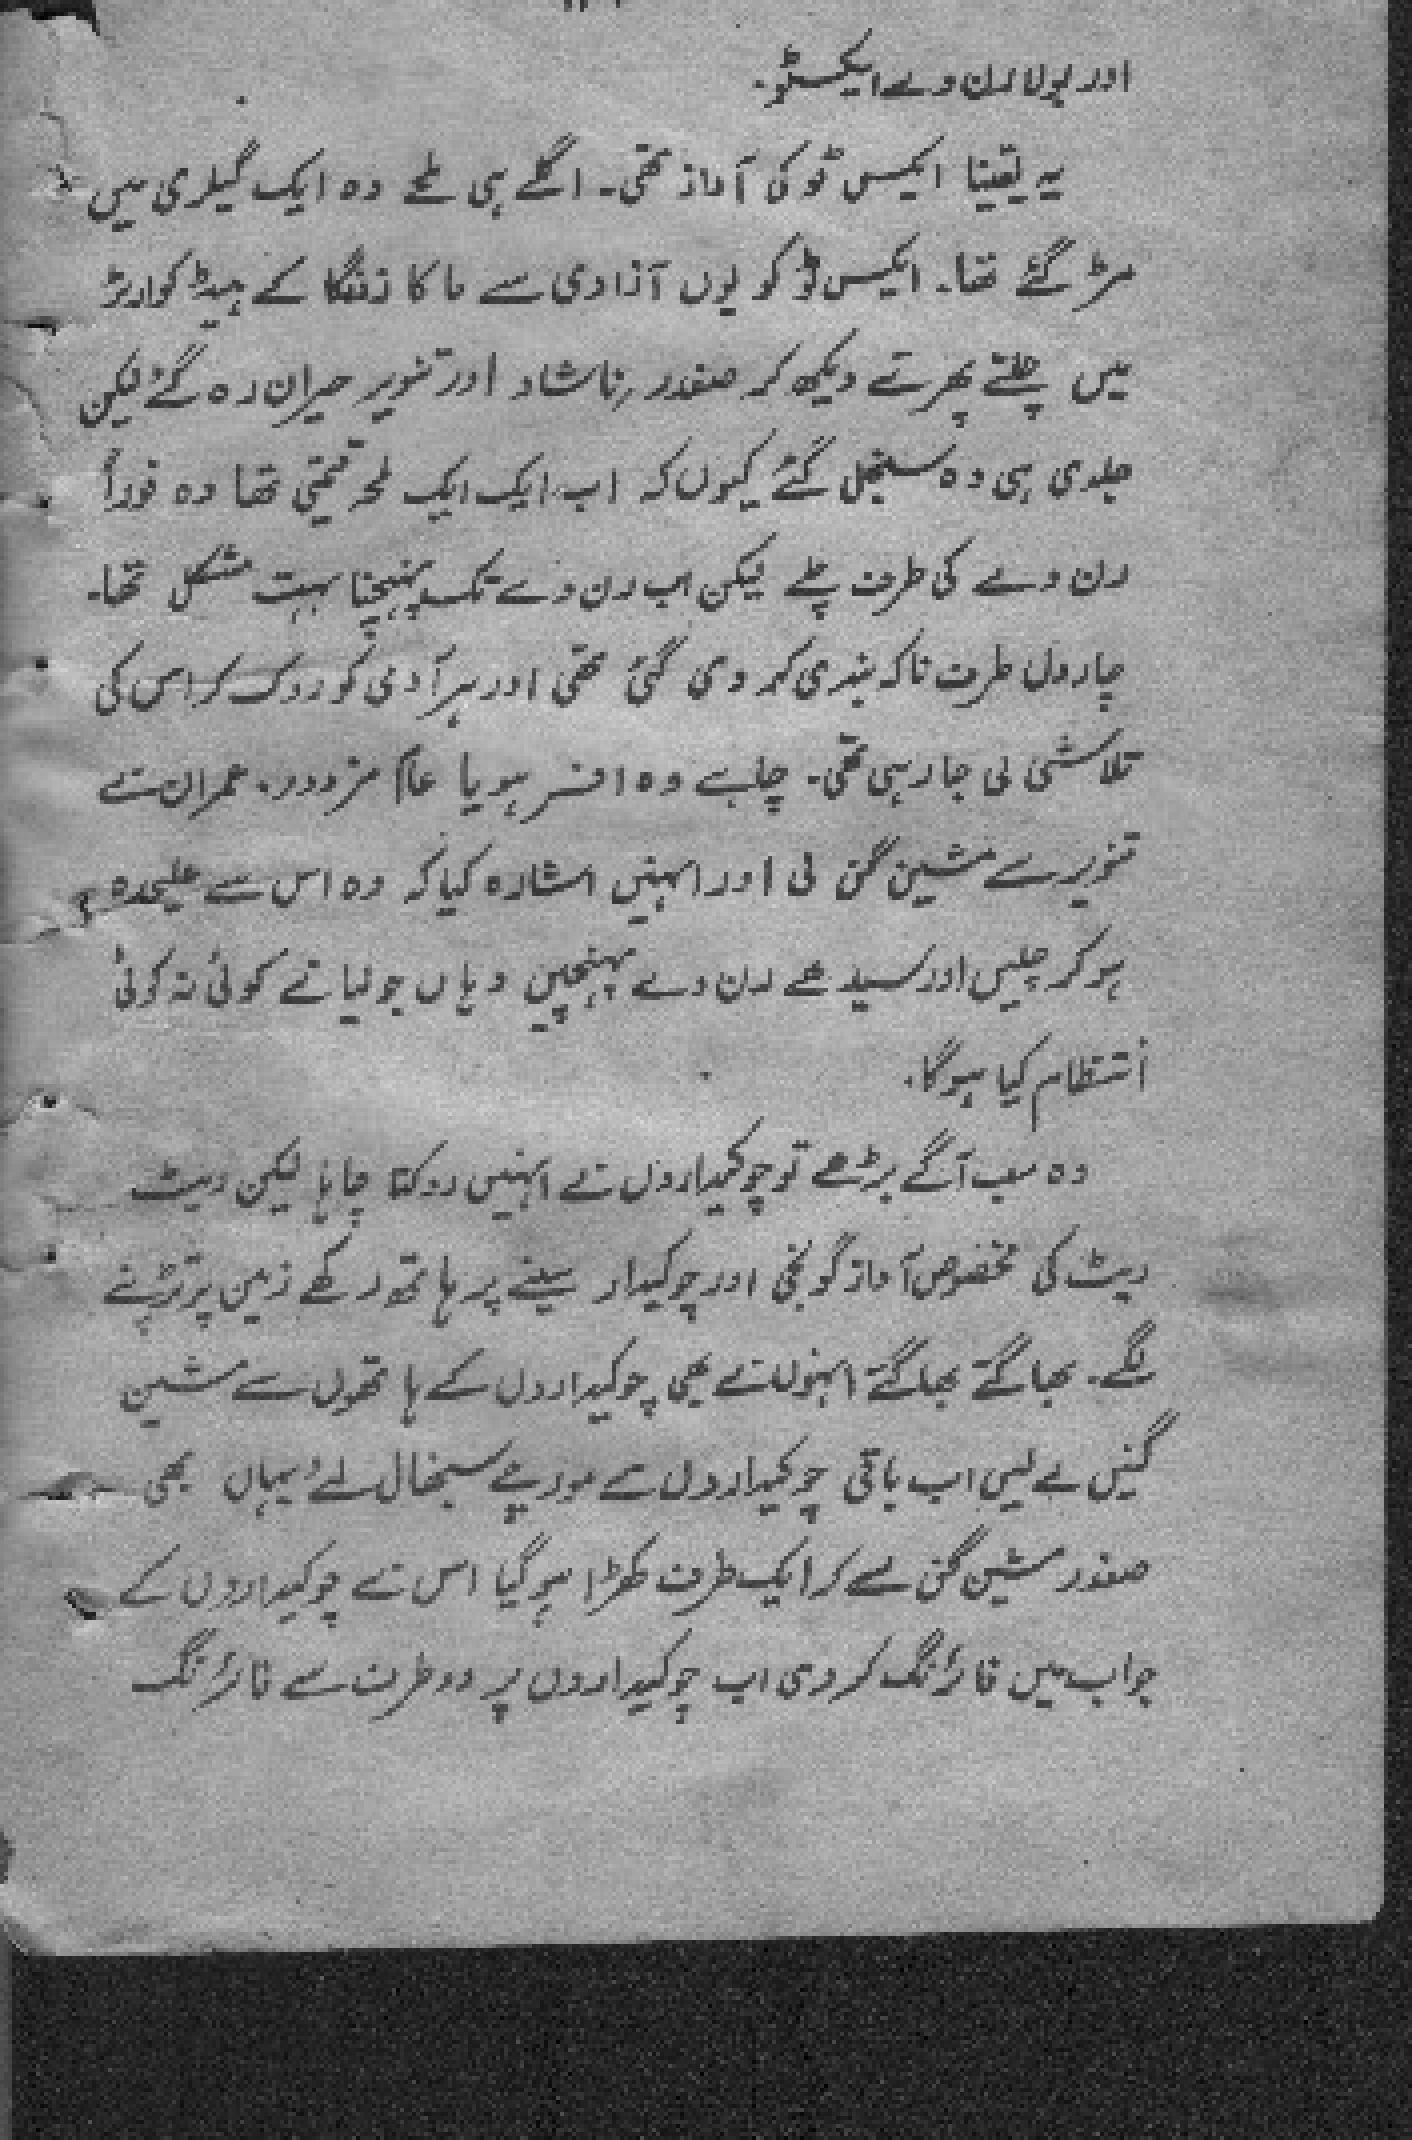 اور بولا رن وے ایکسٹو۔
یہ یقینا ایکس ٹو کی آواز تھی۔ اگلے ہی لمحے وہ ایک گیلری میں
مڑ گئے تھا۔ ایکس ٹو کو یوں آزادی سے ماکا زنگا کے ہیڈ کوارٹر
میں چلتے پھرتے دیکھ کر صفدر، ناشاد اور تنویر حیران رہ گئے لیکن
جلدی ہی وہ سنبھل گئے کیوں کہ اب ایک ایک لمحہ قیمتی تھا وہ فوراً
رن وے کی طرف چلے لیکن اب رن وے تک پہنچنا بہت مشکل تھا۔
چاروں طرف ناکہ بندی کر دی گئی تھی اور ہر آدمی کو روک کر اس کی
تلاشی لی جا رہی تھی۔ چاہے وہ افسر ہو یا عام مزدور۔ عمران نے
تنویر سے مشین گن لی اور انہیں اشارہ کیا کہ وہ اس سے علیحدہ
ہو کر چلیں اور سیدھے رن وے پہنچیں وہاں جولیا نے کوئی نہ کوئی
انتظام کیا ہوگا۔
وہ سب آگے بڑھے تو چوکیداروں نے انہیں روکنا چاہا لیکن ریٹ
ریٹ کی مخصوص آواز گونجی اور چوکیدار سینے پر ہاتھ رکھے زمین پر تڑپنے
لگے۔ بھاگتے بھاگتے انہوں نے بھی چوکیداروں کے ہاتھوں سے مشین
گنیں لے لیں اب باقی چوکیداروں نے مورچے سنبھال لئے یہاں بھی
صفدر مشین گن لے کر ایک طرف کھڑا ہو گیا اس نے چوکیداروں کے
جواب میں فائرنگ کر دی اب چوکیداروں پر دو طرف سے فائرنگ